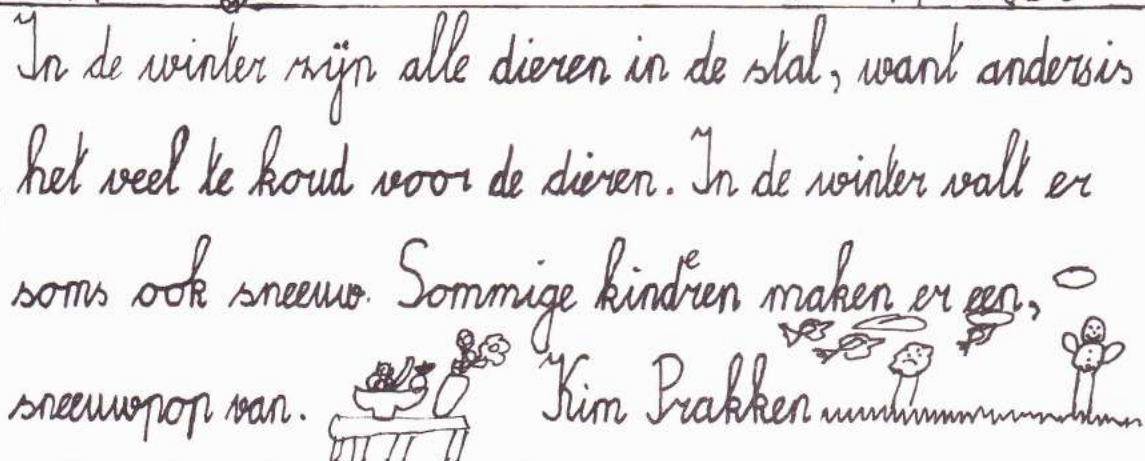 In de winter zijn alle dieren in de stal, want andersis
het veel te koud voor de dieren. In de winter valt er
soms ook sneeuw. Sommige kinderen maken er een,
sneeuwpop van. Kim Prakken